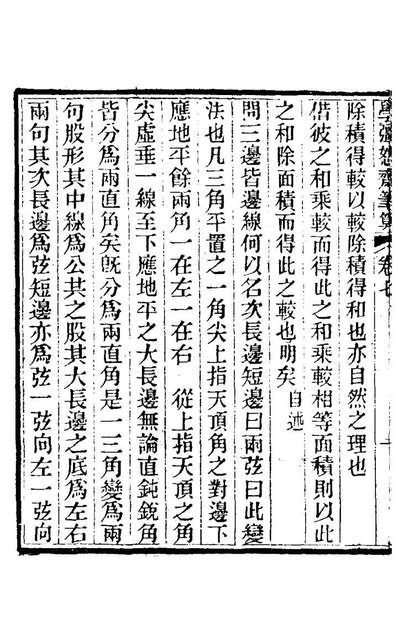 學彊恕齋筆算 卷七
除積得較以較除積得和也亦自然之理也
借彼之和乘較而得此之和乘較相等面積則以此
之和除面積而得此之較也明矣 自述
問三邊皆邊線何以名次長邊短邊曰兩弦曰此變
法也凡三角平置之一角尖上指天頂角之對邊下
應地平餘兩角一在左一在右 從上指天頂之角
尖虛垂一線至下應地平之大長邊無論直鈍銳角
皆分爲兩直角矣旣分爲兩直角是一三角變爲兩
句股形其中線爲公共之股其大長邊之底爲左右
兩句其次長邊爲弦短邊亦爲弦一弦向左一弦向